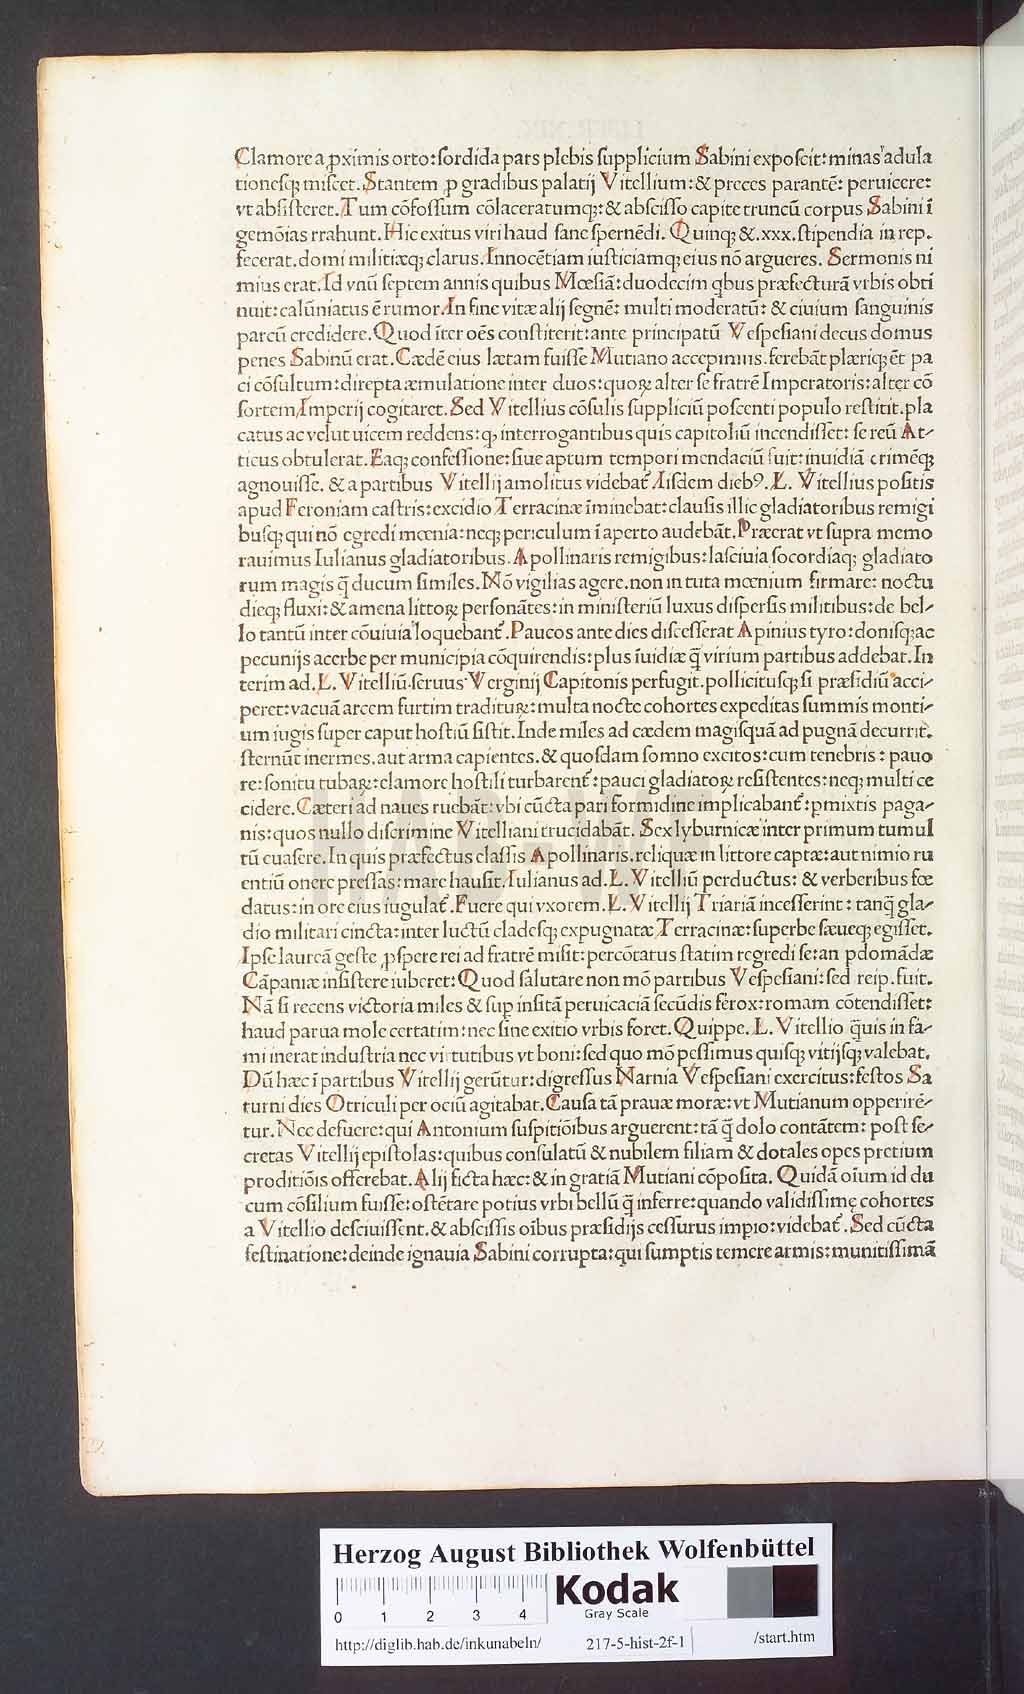 Clamore a ꝓximis orto: sordida pars plebis supplicium Sabini exposcit: minas adula
tionesqꝫ miscet. Stantem ꝓ gradibus palatij Vitellium: & preces parantẽ: peruicere:
vt absisteret. Tum cõfossum cõlaceratumqꝫ: & absciso capite truncũ corpus Sabini ĩ
gemõias rrahunt. Hic exitus viri haud sane spernẽdi. Quinqꝫ &.xxx. stipendia in rep.
fecerat. domi militiæqꝫ clarus. Innocẽtiam iusticiamqꝫ eius nõ argueres. Sermonis ni
mius erat. Id vnũ septem annis quibus Mœsiã: duodecim qbus præfecturã vrbis obti
nuit: calũniatus ẽ rumor. In fine vitæ alij segnẽ: multi moderatũ: & ciuium sanguinis
parcũ credidere. Quod ĩter oẽs constiterit: ante principatũ Vespesiani decus domus
penes Sabinũ erat. Cædẽ eius lætam fuisse Mutiano accepimus. ferebãt plæriqꝫ ẽt pa
ci cõsultum: direpta æmulatione inter duos: quoꝝ alter se fratrẽ Imperatoris: alter cõ
sortem Imperij cogitaret. Sed Vitellius cõsulis suppliciũ poscenti populo restitit. pla
catus ac velut uicem reddens: ꝙ interrogantibus quis capitoliũ incendisset: se reũ At-
ticus obtulerat. Eaqꝫ confessione: siue aptum tempori mendaciũ fuit: inuidiã crimẽqꝫ
agnouisse. & a partibus Vitellij amolitus videbat᷑ Iisdem diebꝰ. L. Vitellius positis
apud Feroniam castris: excidio Terracinæ ĩminebat: clausis illic gladiatoribus remigi
busqꝫ qui nõ egredi mœnia: neqꝫ periculum ĩ aperto audebãt. Præerat vt supra memo
rauimus Iulianus gladiatoribus. Apollinaris remigibus: lasciuia socordiaqꝫ gladiato
rum magis q̃ ducum similes. Nõ vigilias agere. non intuta mœnium firmare: noctu
dieqꝫ fluxi: & amena littoꝝ personãtes: in ministeriũ luxus dispersis militibus: de bel-
lo tantũ inter cõuiuia loquebant᷑. Paucos ante dies discesserat Apinius tyro: donisqꝫ ac
pecunijs acerbe per municipia cõquirendis: plus ĩuidiæ q̃ virium partibus addebat. In
terim ad. L. Vitelliũ. seruus Verginij Capitonis perfugit. pollicitusqꝫ si præsidiũ acci-
peret: vacuã arcem furtim traditurꝝ: multa nocte cohortes expeditas summis monti-
um iugis super caput hostiũ sistit. Inde miles ad cædem magisquã ad pugnã decurrit.
sternũt inermes. aut arma capientes. & quosdam somno excitos: cum tenebris: pauo
re: sonitu tubaꝝ: clamore hostili turbarent᷑: pauci gladiatoꝝ resistentes: neqꝫ multi ce
cidere. Cæteri ad naues ruebãt: vbi cũcta pari formidine implicabant᷑: pmixtis paga-
nis: quos nullo discrimine Vitelliani trucidabãt. Sex lyburnicæ inter primum tumul
tũ euasere. In quis præfectus classis Apollinaris. reliquæ in littore captæ: aut nimio ru
entiũ onere pressas: mare hausit. Iulianus ad. L. Vitelliũ perductus: & verberibus fœ
datus: in ore eius iugulat᷑. Fuere qui vxorem. L. Vitellij Triariã incesserint: tanq̃ gla-
dio militari cincta: inter luctũ cladesqꝫ expugnatæ Terracinæ: superbe sæueqꝫ egisset.
Ipse laureã geste ꝓspere rei ad fratrẽ misit: percõtatus statim regredi se: an pdomãdæ
Cãpaniæ insistere iuberet: Quod salutare non mõ partibus Vespesiani: sed reip. fuit.
Nã si recens victoria miles & sup insitã peruicaciã secũdis ferox: romam cõtendisset:
haud parua mole certatim: nec sine exitio vrbis foret. Quippe. L. Vitellio q̃uis in fa-
mi inerat industria nec virtutibus vt boni: sed quo mõ pessimus quisqꝫ vitijsqꝫ valebat.
Dũ hæc ĩ partibus Vitellij gerũtur: digressus Narnia Vespesiani exercitus: festos Sa
turni dies Otriculi per ociũ agitabat. Causa tã prauæ moræ: vt Mutianum opperirẽ-
tur. Nec defuere: qui Antonium suspitiõibus arguerent: tã q̃ dolo contãtem: post se-
cretas Vitellij epistolas: quibus consulatũ & nubilem filiam & dotales opes pretium
proditiõis offerebat. Alij ficta hæc: & in gratiã Mutiani cõposita. Quidã oĩum id du
cum cõsilium fuisse: ostẽtare potius vrbi bellũ q̃ inferre: quando validissimę cohortes
a Vitellio desciuissent. & abscissis oĩbus præsidijs cessurus impio: videbat᷑. Sed cũcta
festinatione: deinde ignauia Sabini corrupta: qui sumptis temere armis: munitissimã
Herzog August Bibliothek Wolfenbüttel
0 1 2 3 4
Kodak
Gray Scale
http://diglib.hab.de/inkunabeln/ 217-5-hist-2f-1 /start.htm